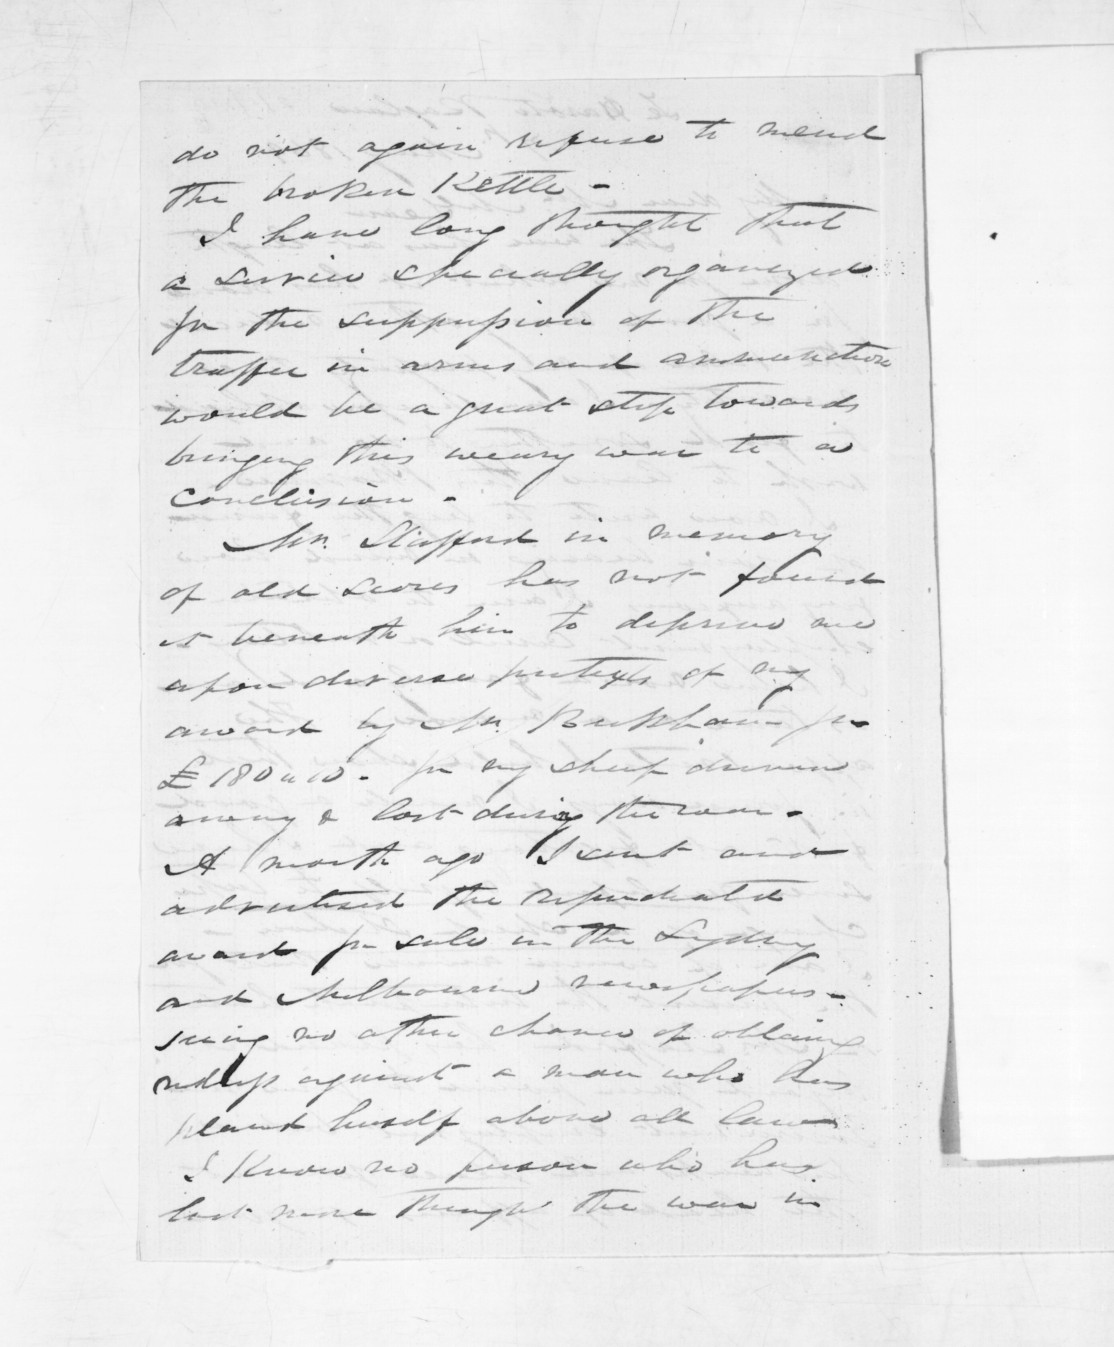 do not again refuse to mend
the broken Kettle -
I have long thought that
a service specially organized
for the suppression of the
traffic in arms and ammunition
would be a great step towards
bringing this weary war to a
conclusion -
Mr. Stafford in memory
of old scores has not found
it beneath him to deprive me
upon diverse pretexts of my
award by Mr. Beckham for
£180 " 10 - for my sheep driven
away & lost during the war -
A month ago I sent and
advertised the repudiated
award for sale in the Sydney
and Melbourne newspapers -
seeing no other chance of obtaing
redress against a man who has
placed himself above all law
I Know no person who has
lost more through the war in